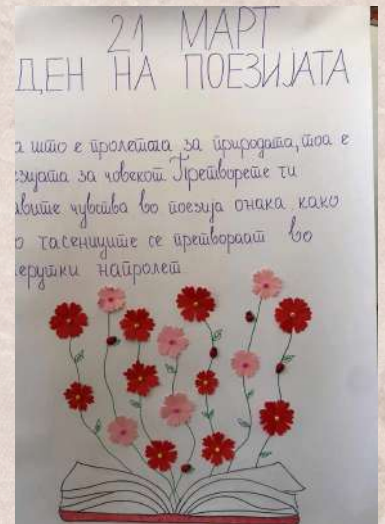 21 МАРТ
ДЕН НА ПОЕЗИЈАТА
што е пролетта за природата, тоа е
за човекот. Претворете ги
чувства во поезија онака како
гасениците се претвораат во
напролет.